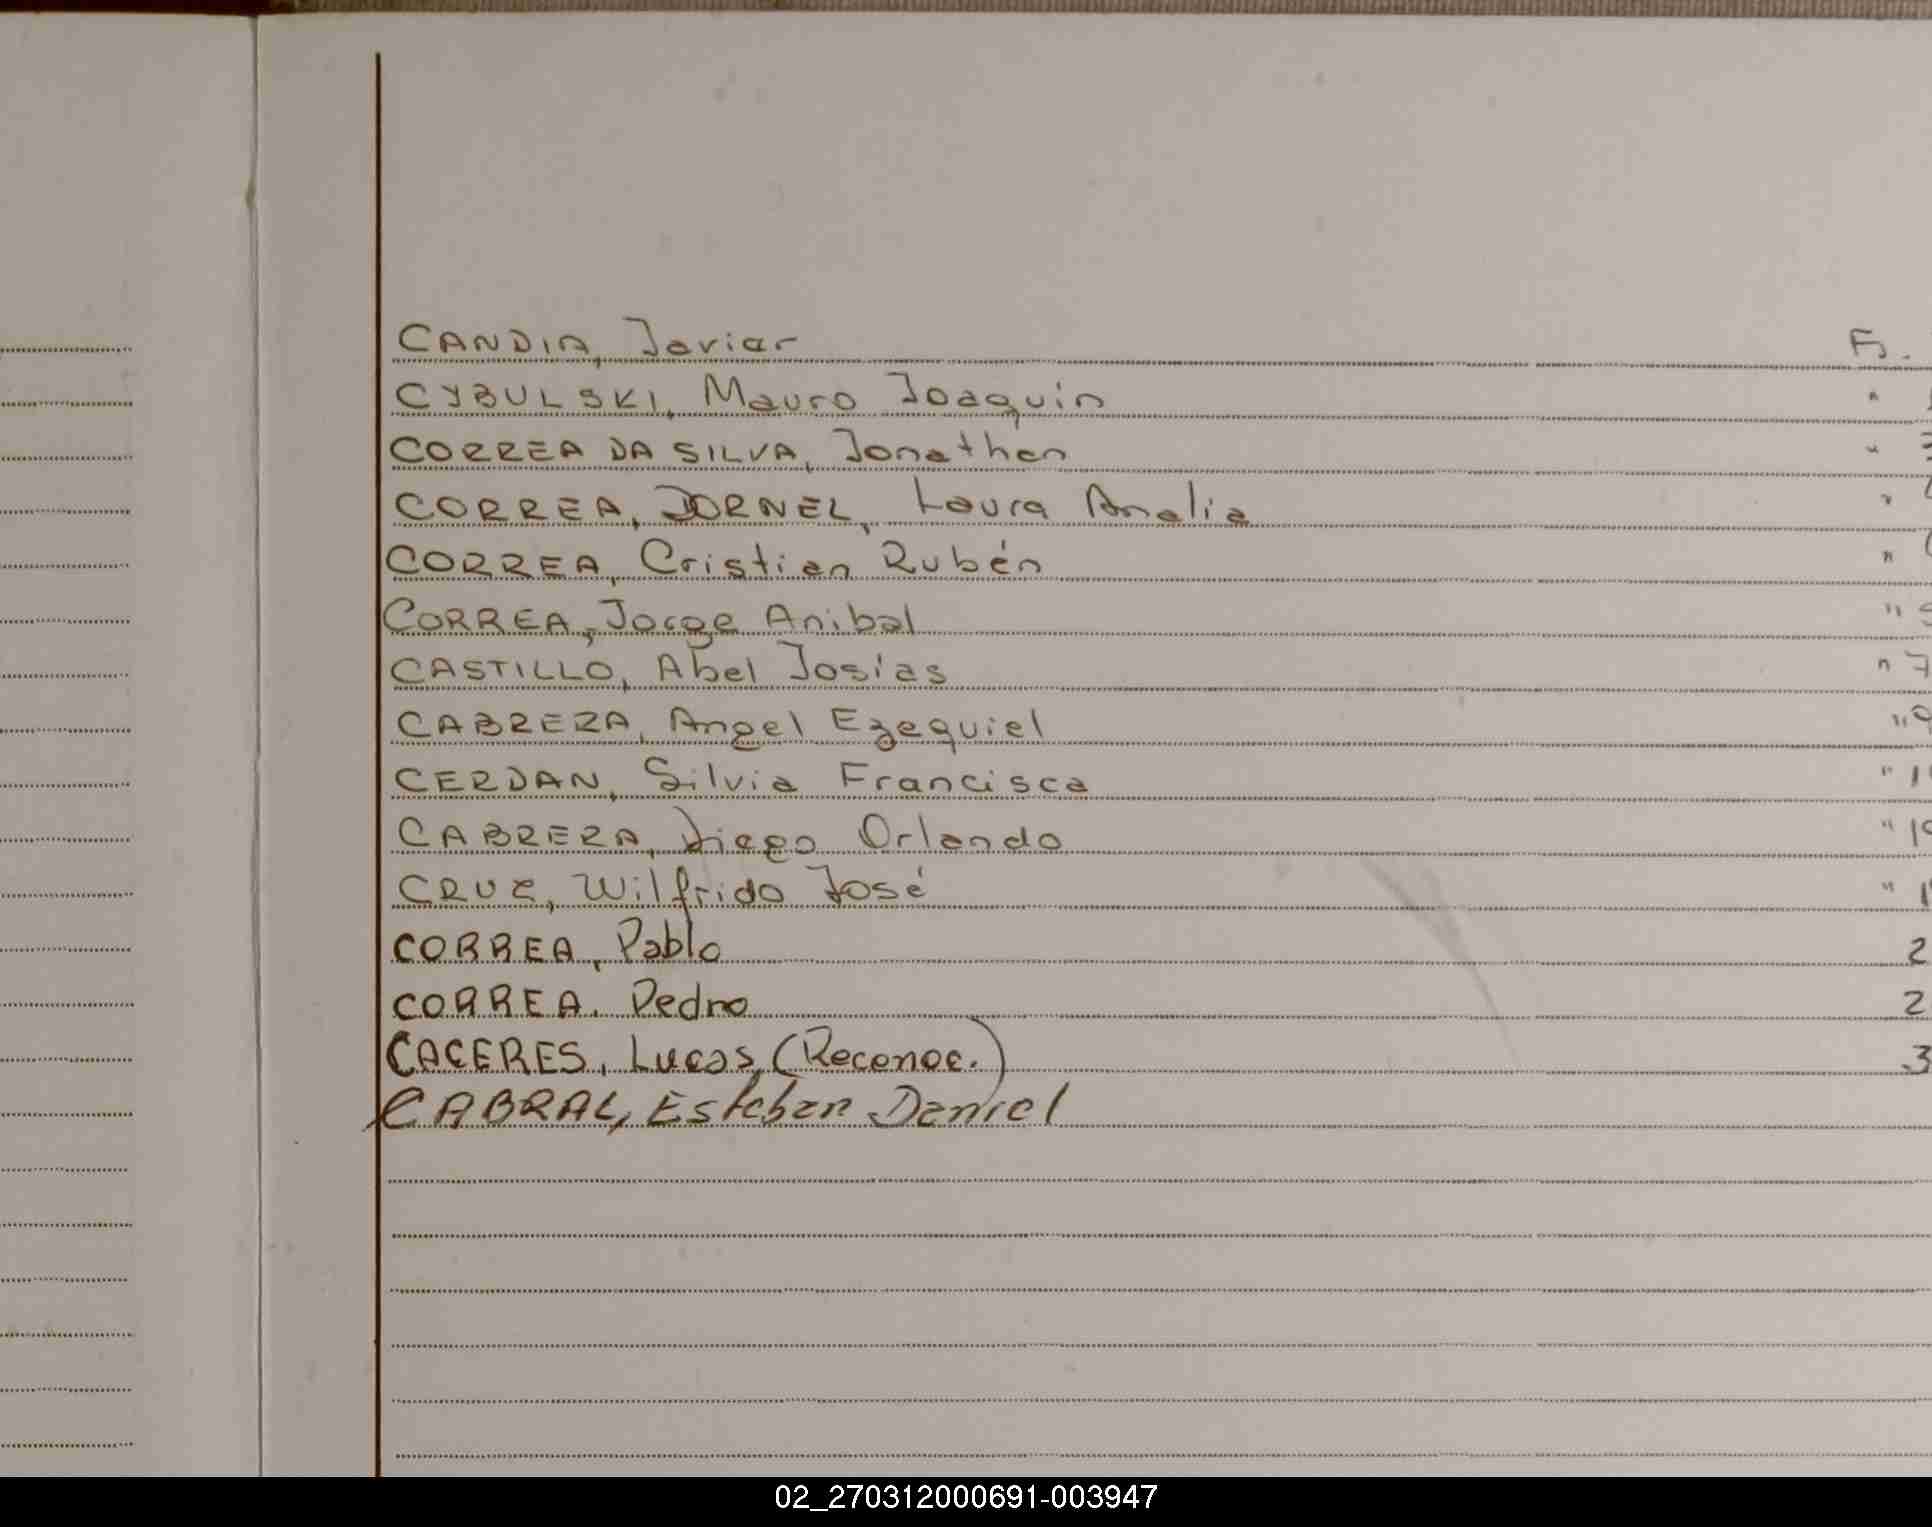 CANDIA, Javier Fs.
CYBULSKI, Mauro Joaquín "
CORREA DA SILVA, Jonathan "
CORREA, DORNEL, Laura Analia "
CORREA, Cristian Rubén "
CORREA, Jorge Anibal "
CASTILLO, Abel Josías " 7
CABRERA, Angel Ezequiel " 9
CERDAN, Silvia Francisca " 1
CABRERA, Diego Orlando " 1
CRUZ, Wilfrido José " 1
CORREA, Pablo 2
CORREA, Pedro 2
CACERES, Lucas, (Reconoc.) 3
CABRAL, Esteban Daniel
02_270312000691-003947